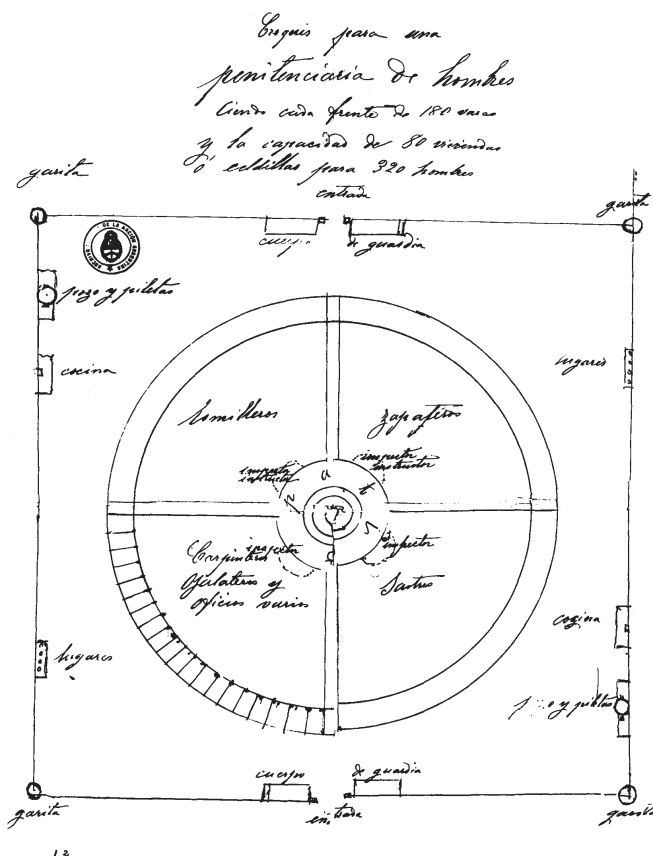 Croquis para una
penitenciaria de hombres
Ciendo cada frente de 180 varas
y la capacidad de 80 viviendas
ó celdillas para 320 hombres
entrada
garita
garita
cuerpo de guardia
pozo y piletas
cocina
lugares
Lomilleros
zapateros
inspector
instructor
inspector
instructor
inspector
inspector
Carpinteros
Ojalateros y
oficios varios
Sastres
cozina
lugares
y piletas
cuerpo de guardia
garita
entrada
garita